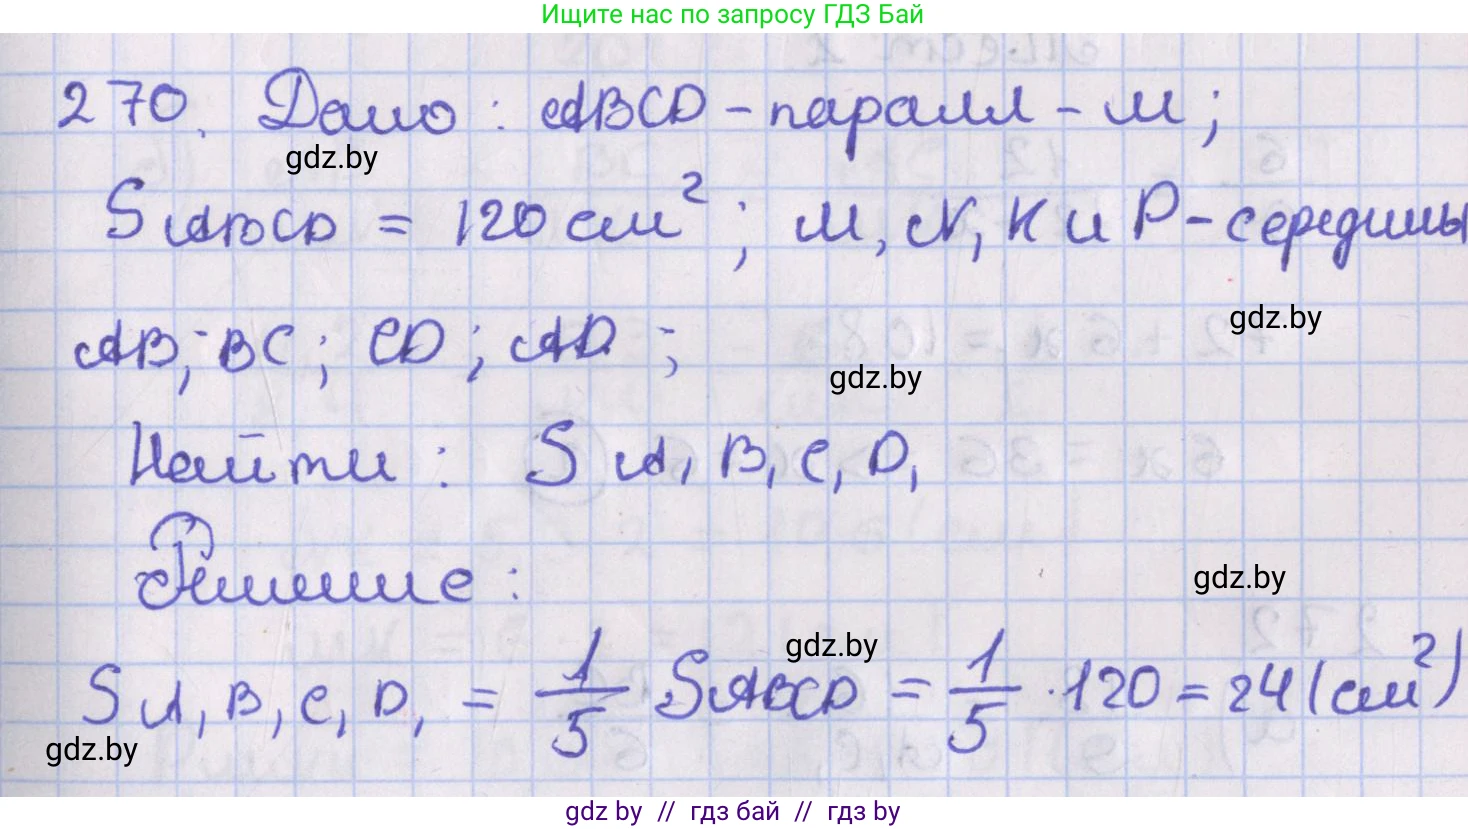 Ищите нас по запросу ГДЗ Бай
270. Дано: ABCD - паралл - м;
gdz.by
S ABCD = 120 см²; M, N, K и P - середины
gdz.by
AB; BC; CD; AD;
gdz.by
Найти: S A₁B₁C₁D₁
Решение:
gdz.by
gdz.by
S A₁B₁C₁D₁ = 1/5 S ABCD = 1/5 · 120 = 24 (см²)
gdz.by
gdz by // гдз бай // гдз by